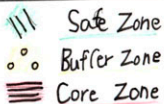 Safe Zone
Buffer Zone
Core Zone